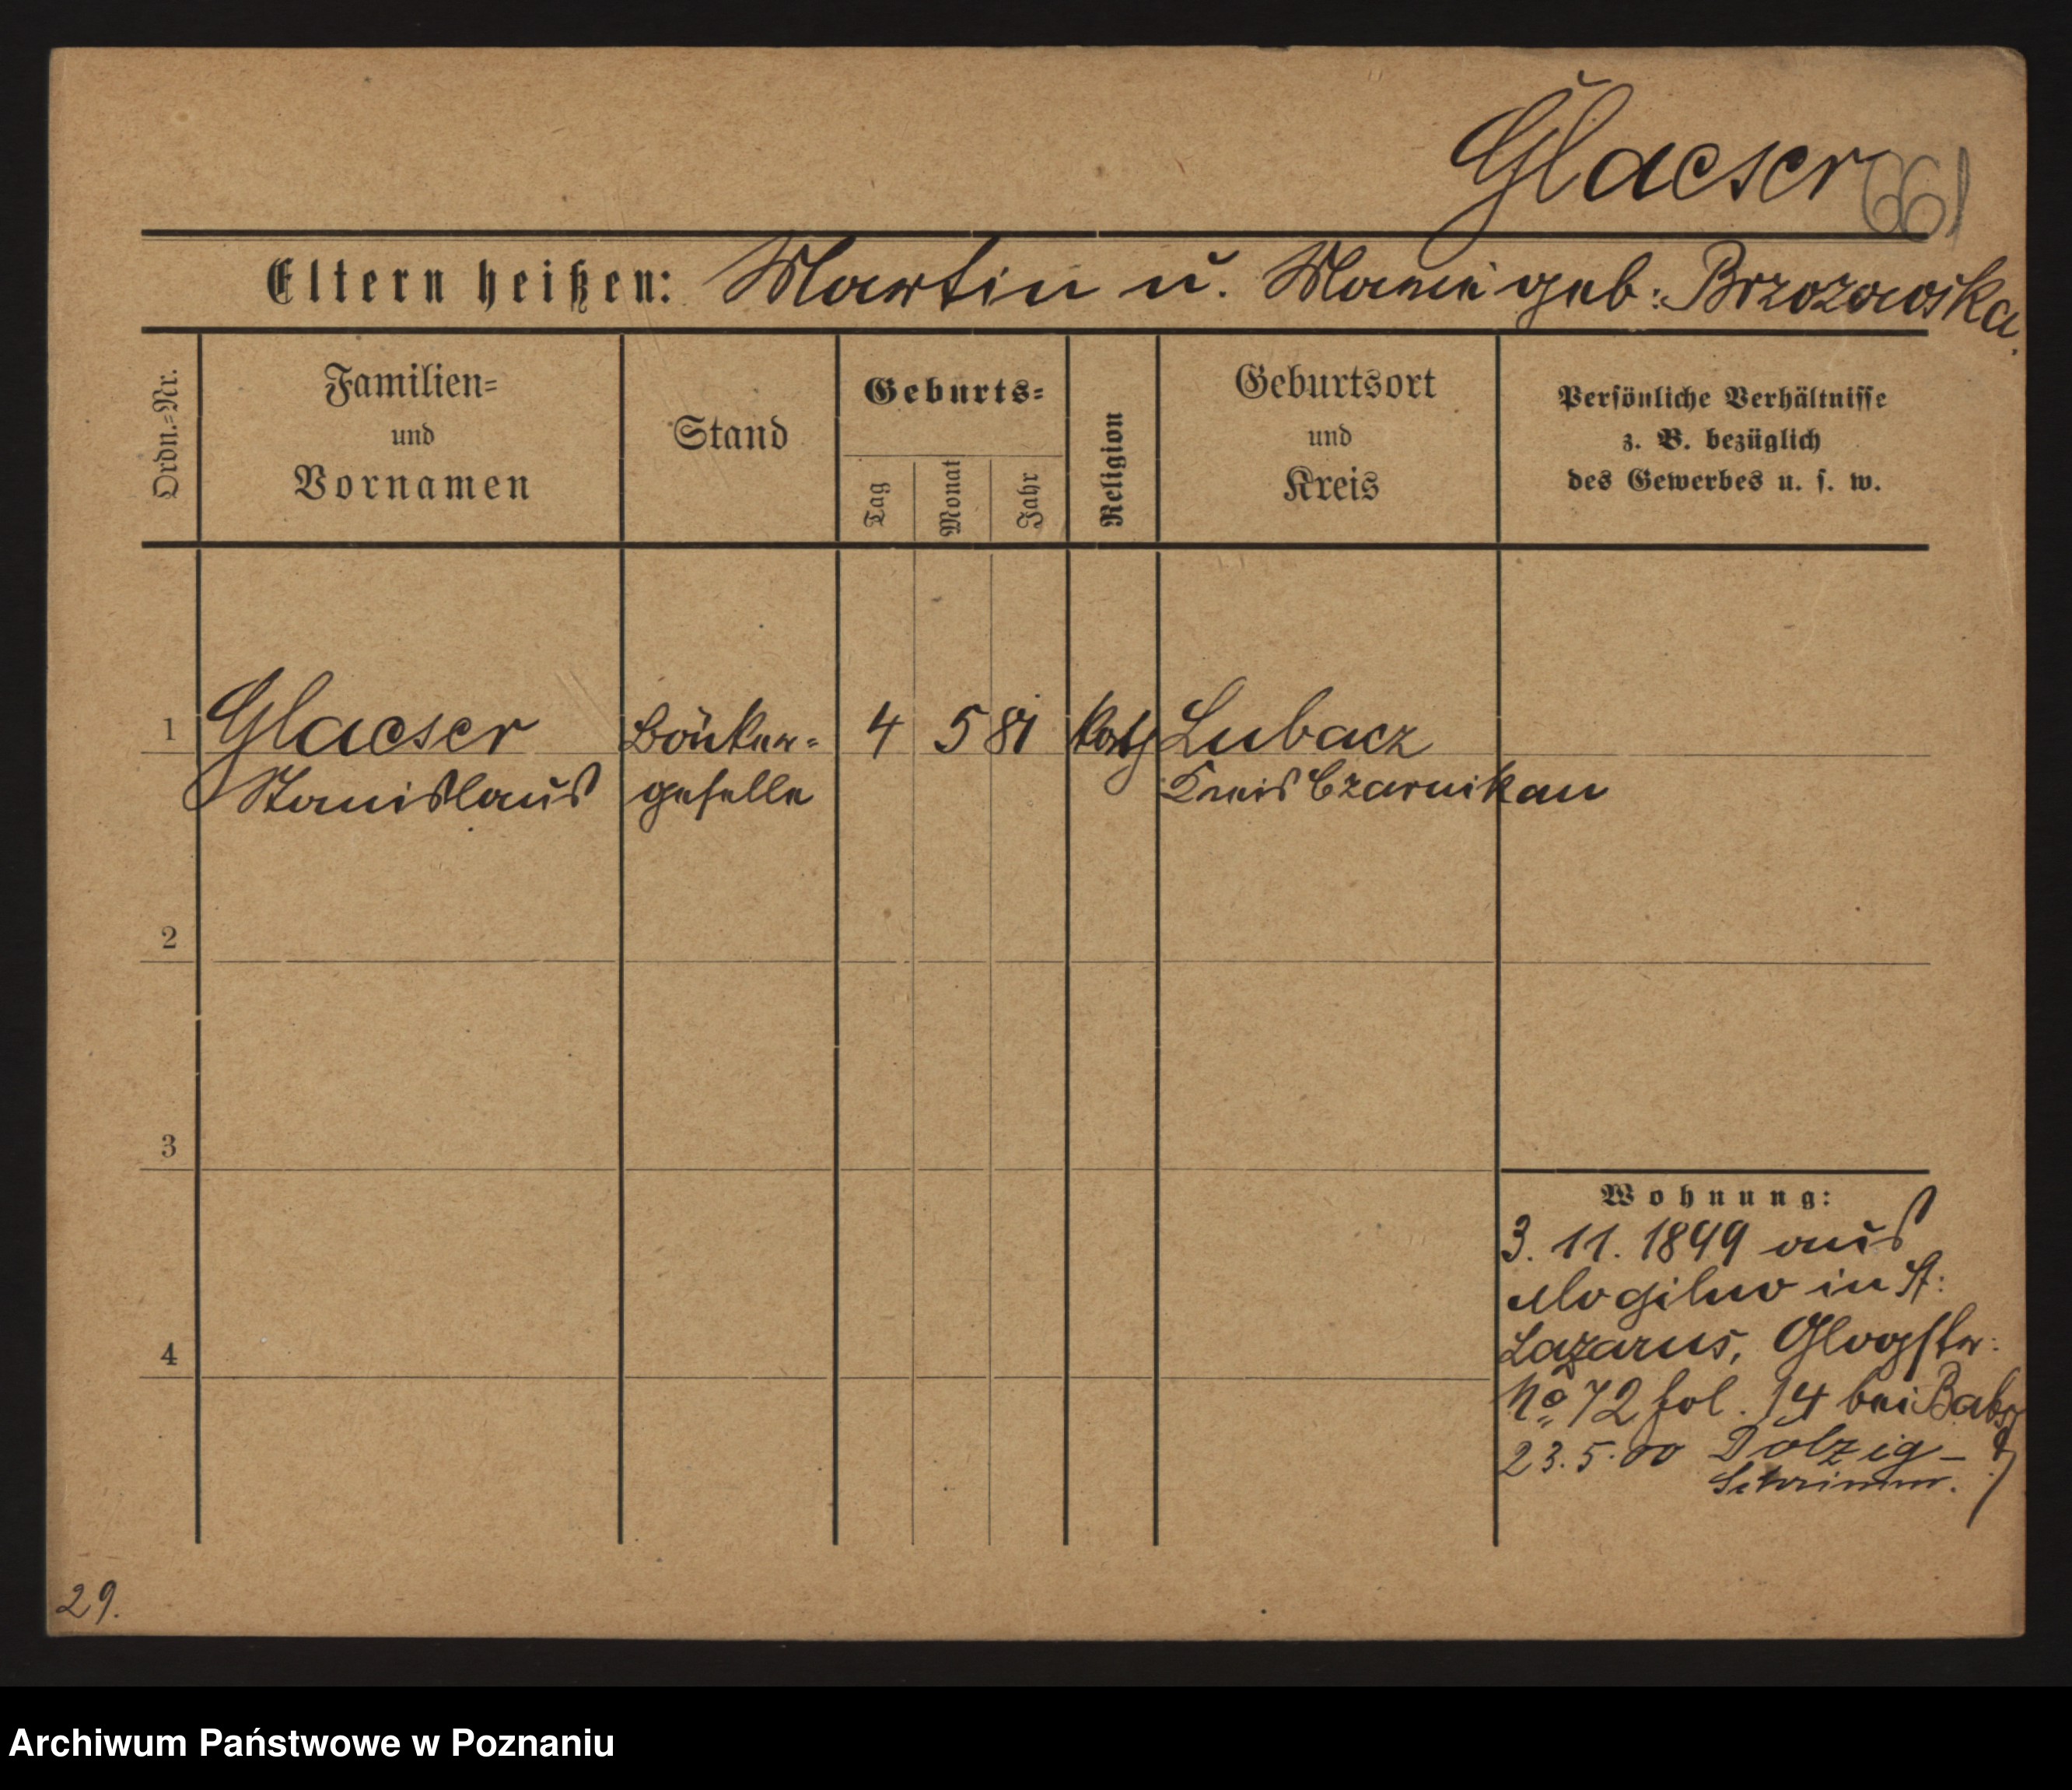 Glaeser
661
Eltern heißen: Martin u. Marie geb: Brzozowska.
Ordn.=Nr.
Familien=
und
Vornamen
Stand
Geburts=
Tag
Monat
Jahr
Religion
Geburtsort
und
Kreis
Persönliche Verhältnisse
z. B. bezüglich
des Gewerbes u. s. w.
1 Glaeser Böttcher= 4 5 81 kath Lubacz
Stanislaus geselle Kreis Czarnikau
2
3
4
Wohnung:
3. 11. 1899 aus
Mogilno in St:
Lazarus, Glogstr:
No 72 fol. 14 bei
23.5.00 Dolzig –
Schrimm.
29.
Archiwum Państwowe w Poznaniu